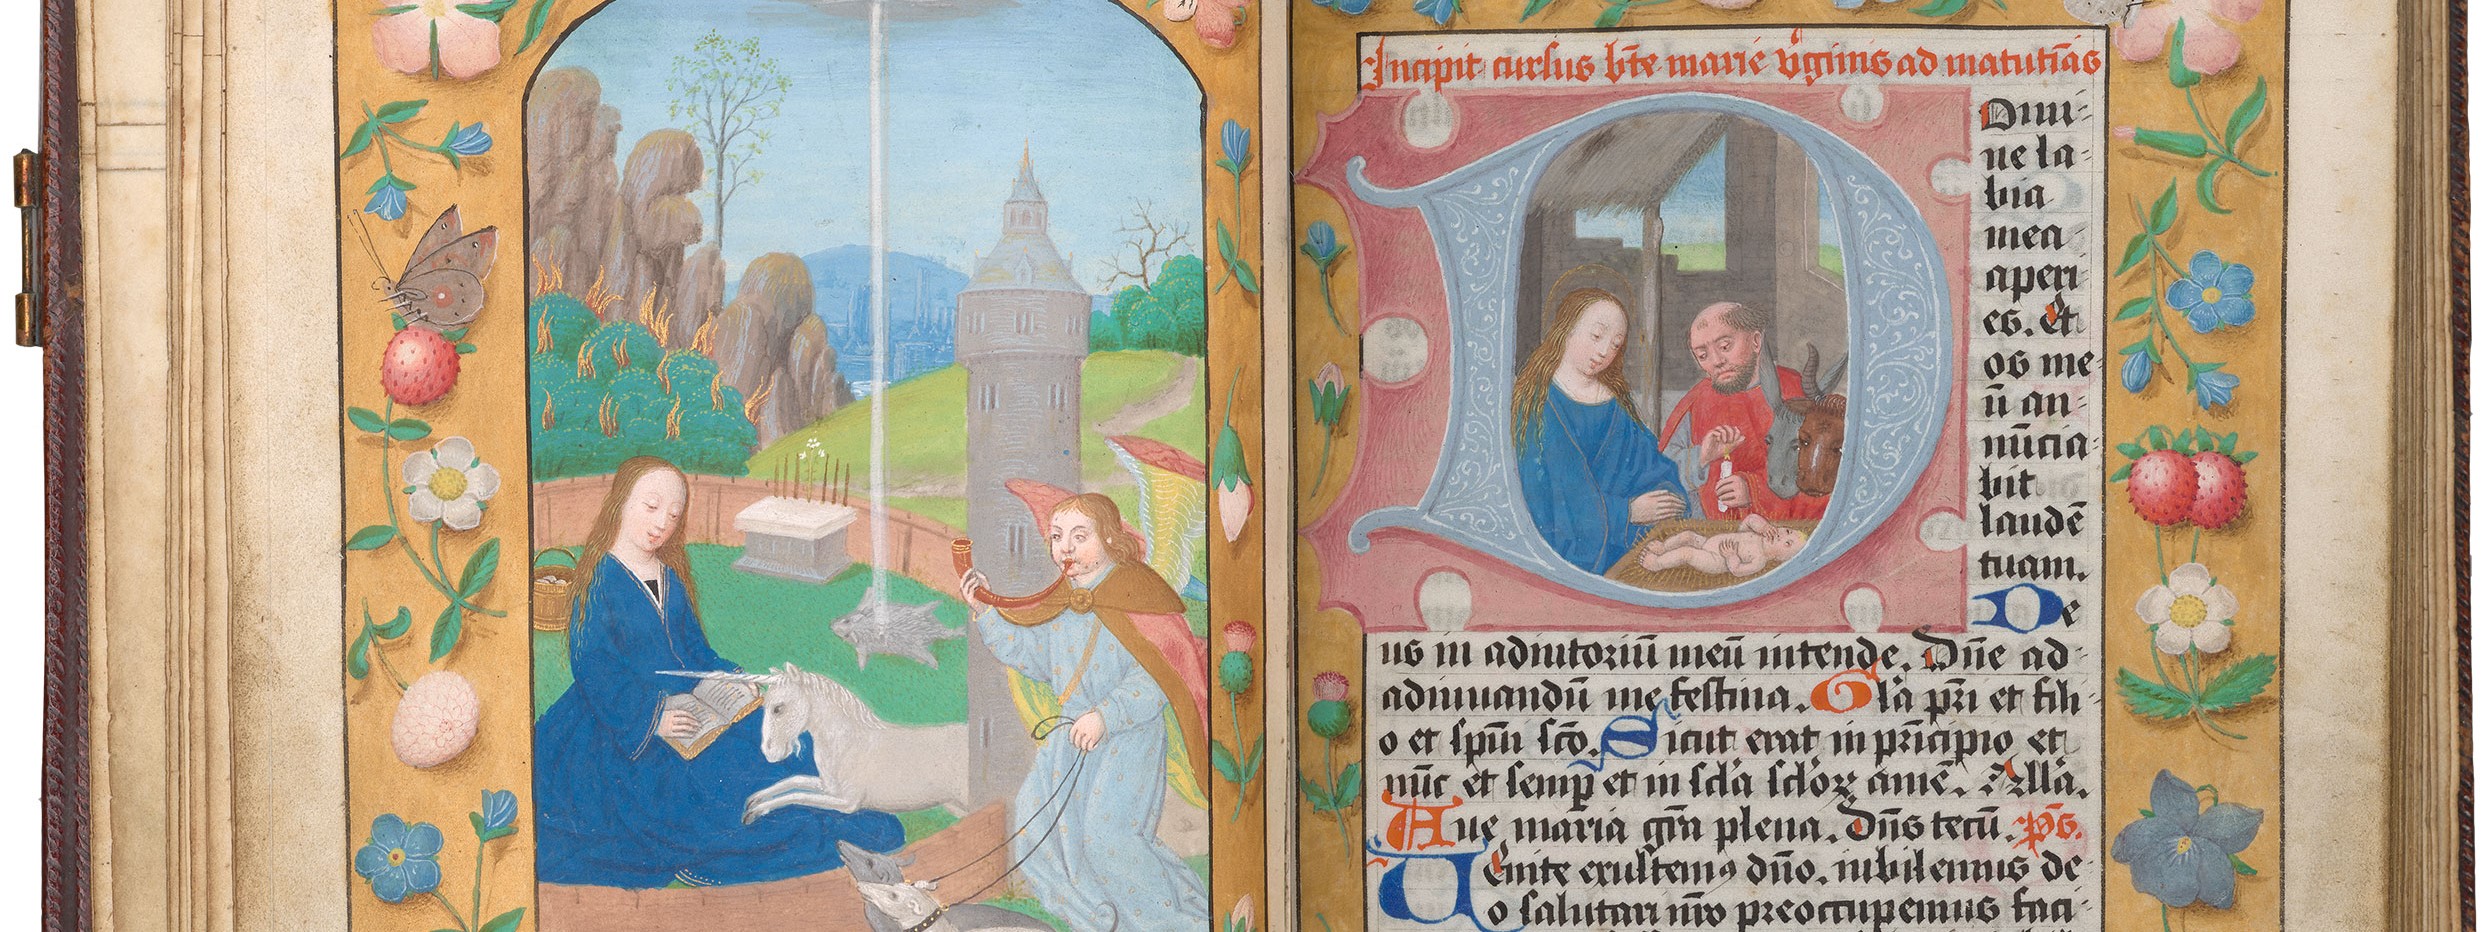 Incipit cursus bt̄e marie v̄ginis ad matutīas
Domi-
ne la-
bia
mea
aperi-
es. et
os me-
ū an-
nūcia-
bit
laudē
tuam.
De
us in adiutoriū meū intende. Dn̄e ad-
adiuuandū me festina. Gl̄a p̄ri et fili-
o et spūi sc̄o. Sicut erat in prīcipio et
nūc et semp̄ et in scl̄a scl̄oꝝ amē. All̄a.
Aue maria gr̄a plena. dn̄s tecū. p̄s.
Uenite exultemꝰ dn̄o. iubilemus de-
o salutari nr̄o preoccupemus faci-